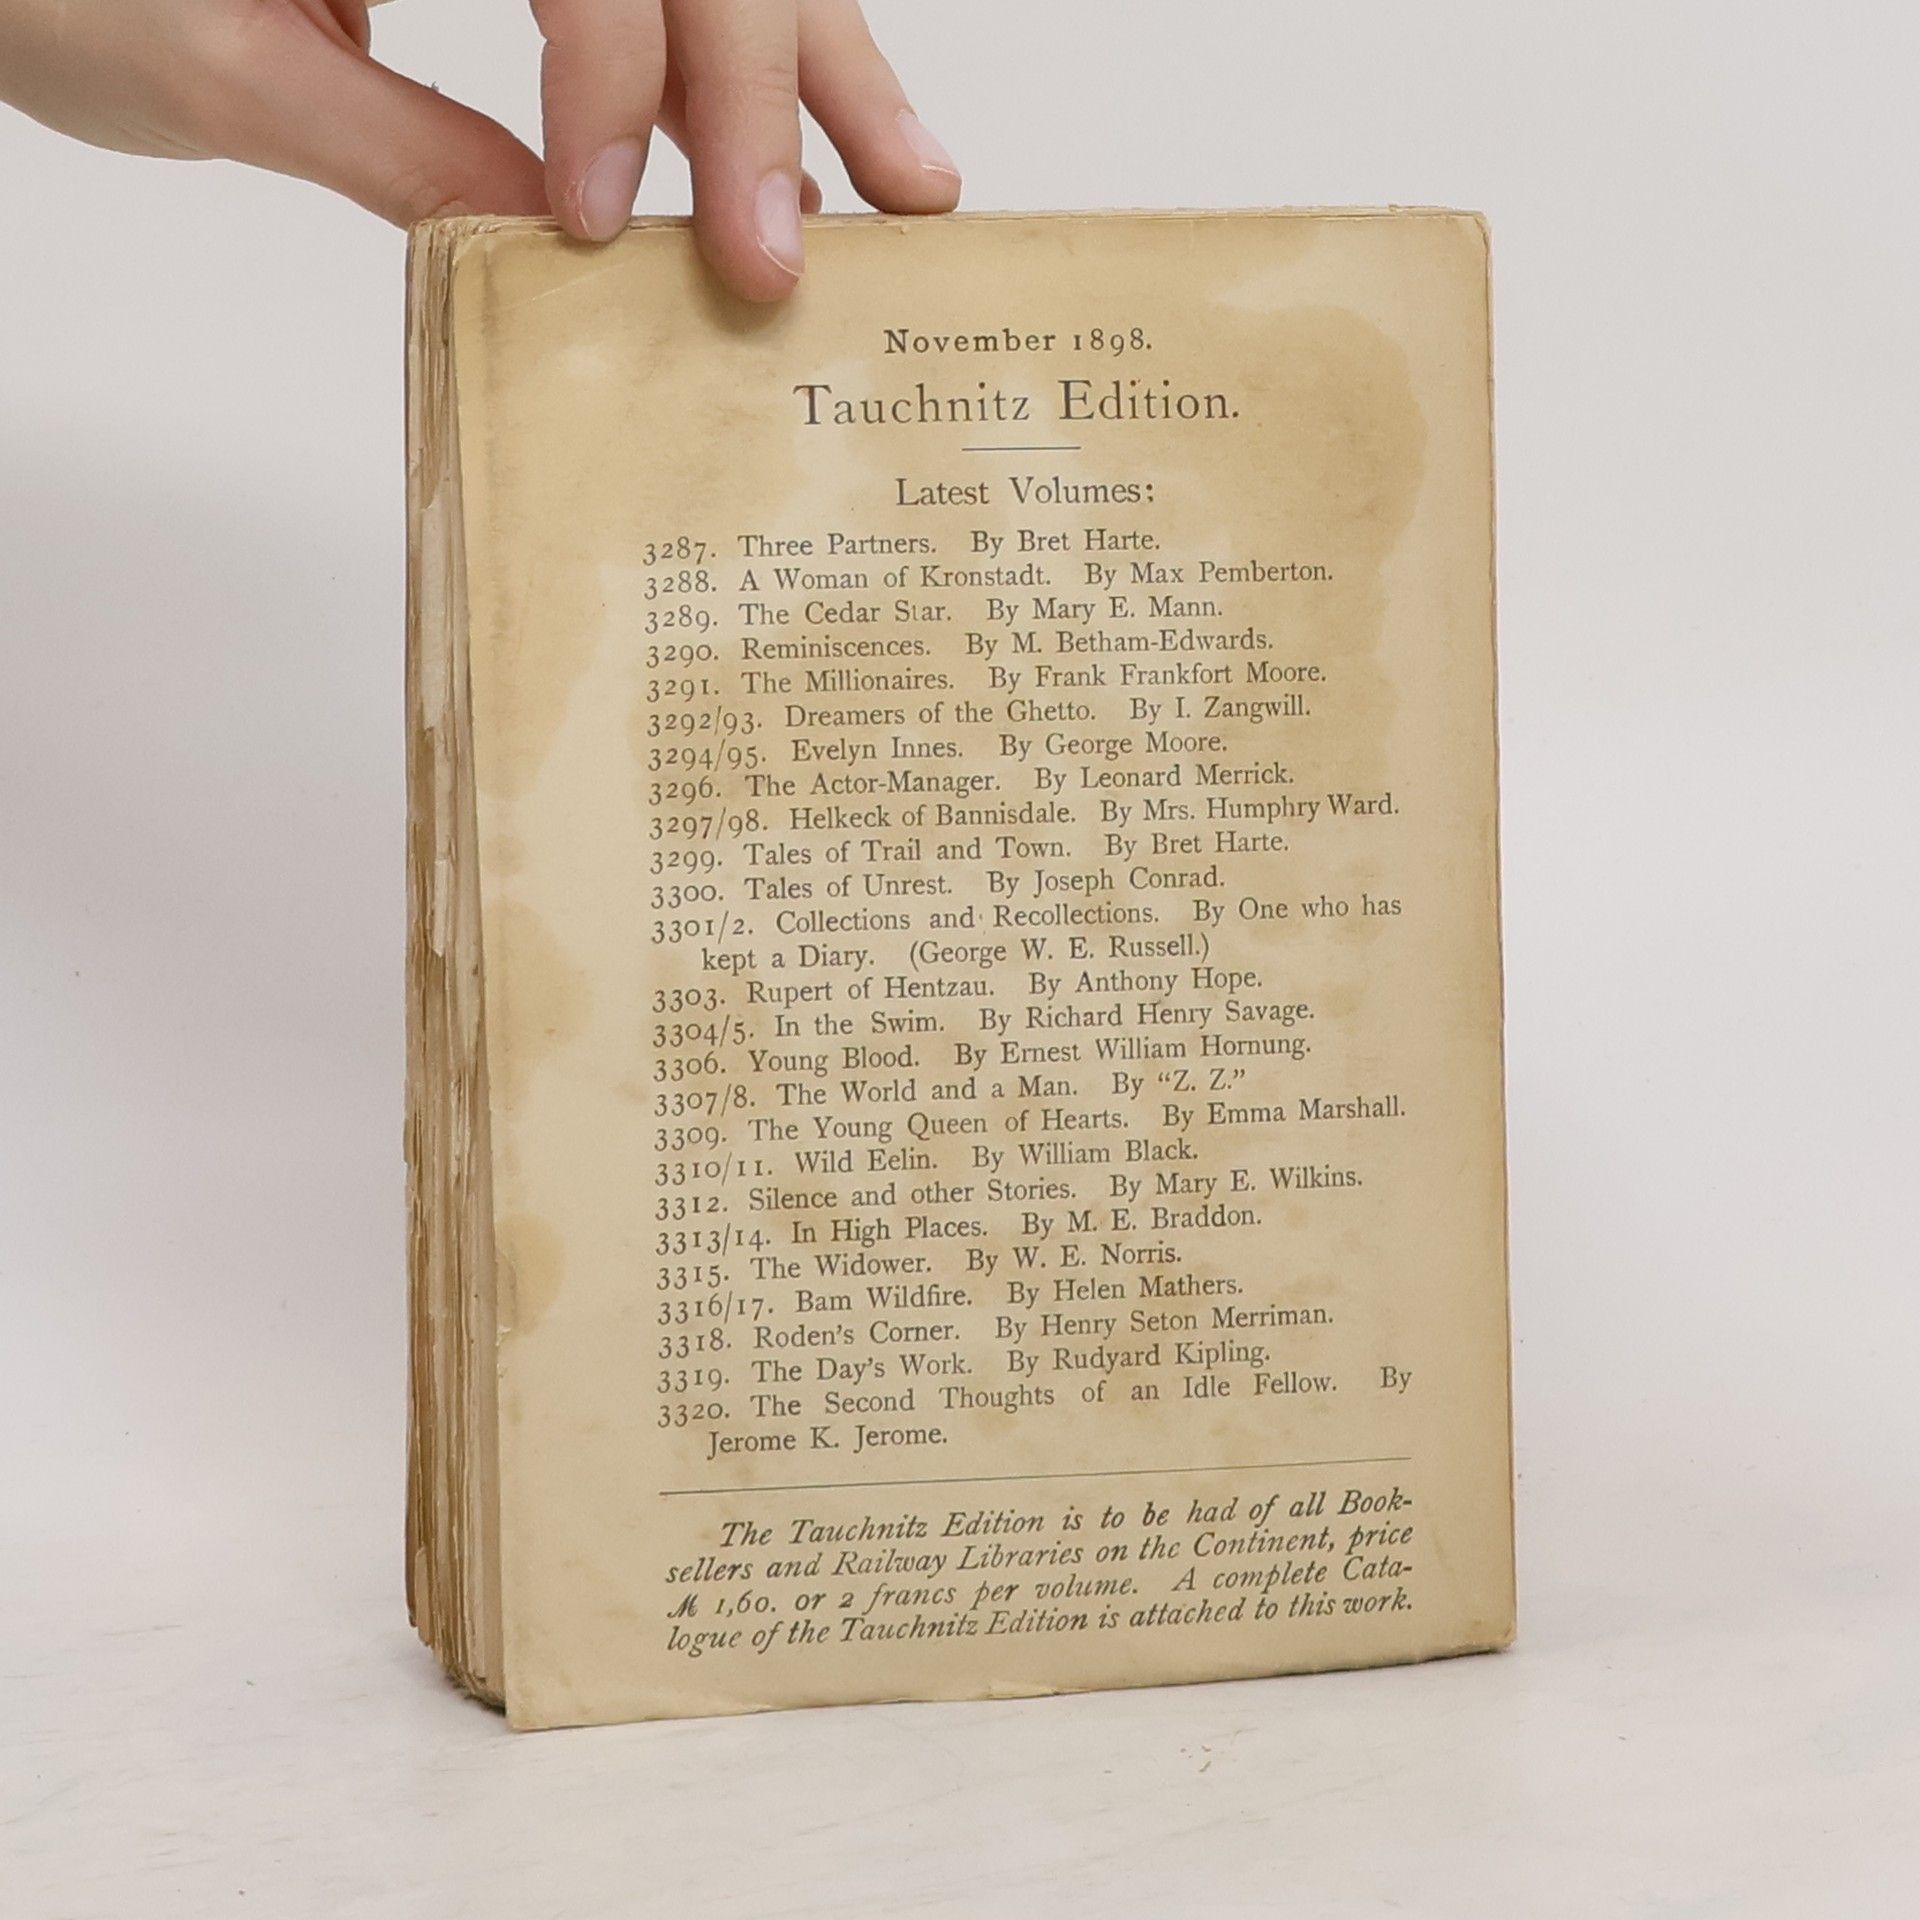 November 1898.
Tauchnitz Edition.
Latest Volumes:
3287. Three Partners. By Bret Harte.
3288. A Woman of Kronstadt. By Max Pemberton.
3289. The Cedar Star. By Mary E. Mann.
3290. Reminiscences. By M. Betham-Edwards.
3291. The Millionaires. By Frank Frankfort Moore.
3292/93. Dreamers of the Ghetto. By I. Zangwill.
3294/95. Evelyn Innes. By George Moore.
3296. The Actor-Manager. By Leonard Merrick.
3297/98. Helkeck of Bannisdale. By Mrs. Humphry Ward.
3299. Tales of Trail and Town. By Bret Harte.
3300. Tales of Unrest. By Joseph Conrad.
3301/2. Collections and Recollections. By One who has
kept a Diary. (George W. E. Russell.)
3303. Rupert of Hentzau. By Anthony Hope.
3304/5. In the Swim. By Richard Henry Savage.
3306. Young Blood. By Ernest William Hornung.
3307/8. The World and a Man. By “Z. Z.”
3309. The Young Queen of Hearts. By Emma Marshall.
3310/11. Wild Eelin. By William Black.
3312. Silence and other Stories. By Mary E. Wilkins.
3313/14. In High Places. By M. E. Braddon.
3315. The Widower. By W. E. Norris.
3316/17. Bam Wildfire. By Helen Mathers.
3318. Roden's Corner. By Henry Seton Merriman.
3319. The Day's Work. By Rudyard Kipling.
3320. The Second Thoughts of an Idle Fellow. By
Jerome K. Jerome.
The Tauchnitz Edition is to be had of all Book-
sellers and Railway Libraries on the Continent, price
ℳ 1,60. or 2 francs per volume. A complete Cata-
logue of the Tauchnitz Edition is attached to this work.